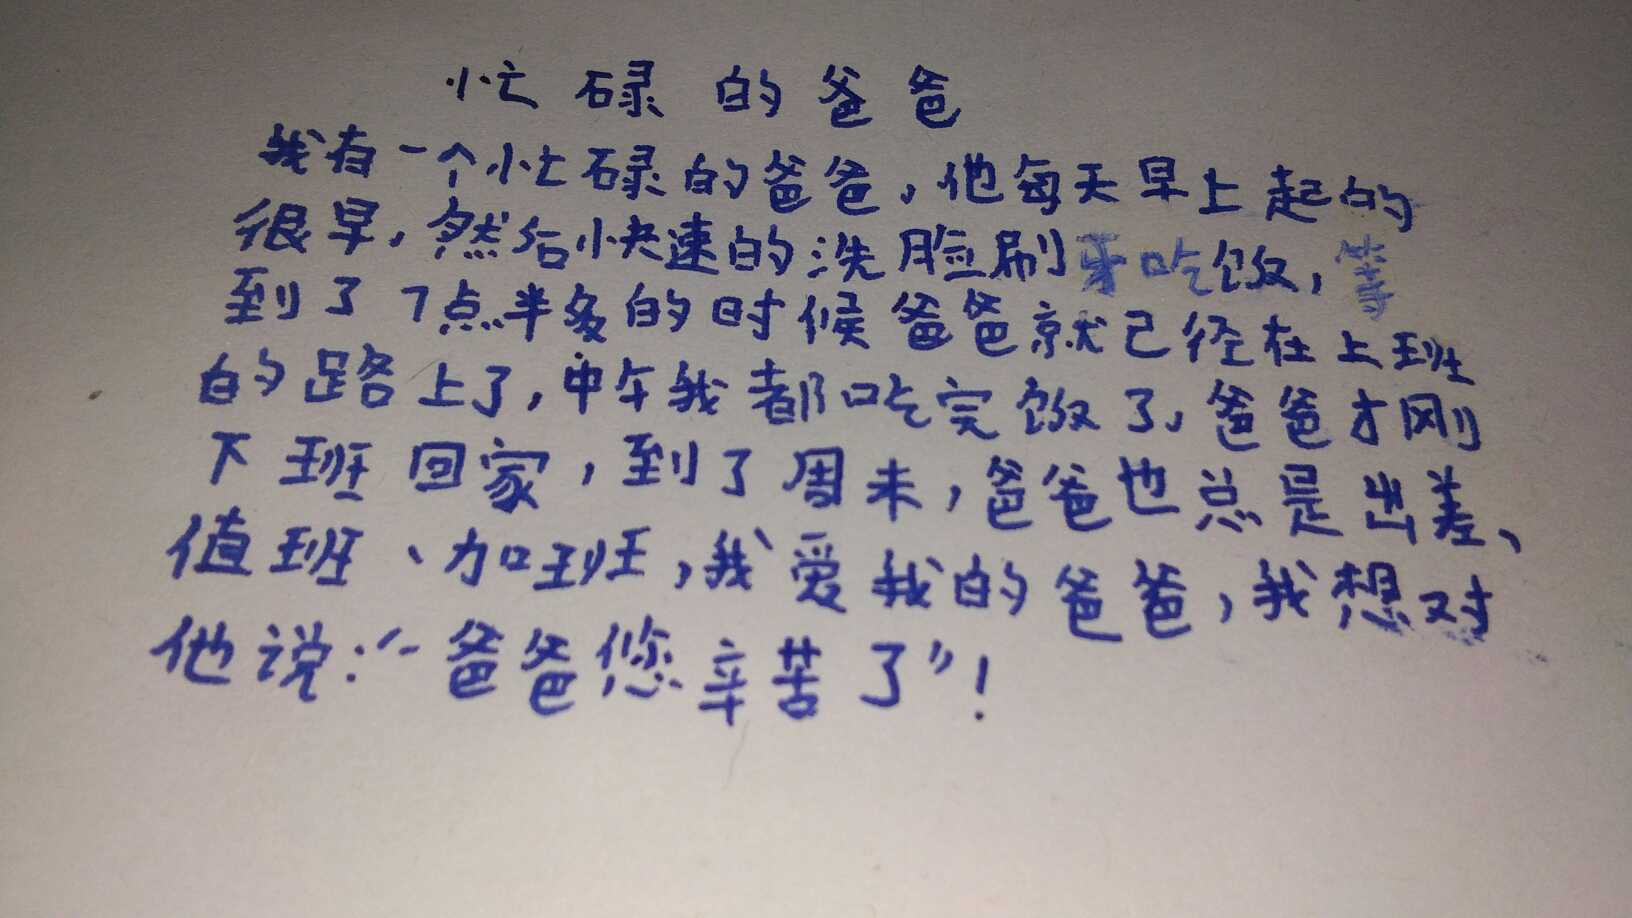 忙碌的爸爸
我有一个忙碌的爸爸，他每天早上起的
很早，然后快速的洗脸刷牙吃饭，等
到了7点半多的时候爸爸就已径在上班
的路上了，中午我都吃完饭了，爸爸才刚
下班回家，到了周末，爸爸也总是出差、
值班、加班，我爱我的爸爸，我想对
他说：“爸爸您辛苦了”！